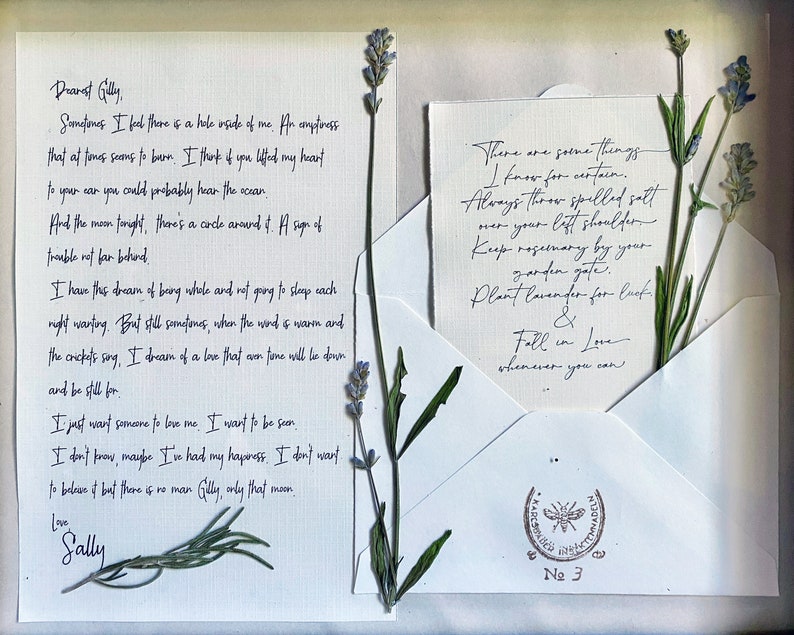 Dearest Gilly,
Sometimes I feel there is a hole inside of me. An emptiness
that at times seems to burn. I think if you lifted my heart
to your ear you could probably hear the ocean.
And the moon tonight, there's a circle around it. A sign of
trouble not far behind.
I have this dream of being whole and not going to sleep each
night wanting. But still sometimes, when the wind is warm and
the crickets sing, I dream of a love that even time will lie down
and be still for.
I just want someone to love me. I want to be seen.
I don't know, maybe I've had my hapiness. I don't want
to beleive it but there is no man Gilly, only that moon.
Love,
Sally
There are some things
I know for certain.
Always throw spilled salt
over your left shoulder.
Keep rosemary by your
garden gate.
Plant lavender for luck.
&
Fall in Love
whenever you can
KARLSBADER INSEKTENNADELN
No 3